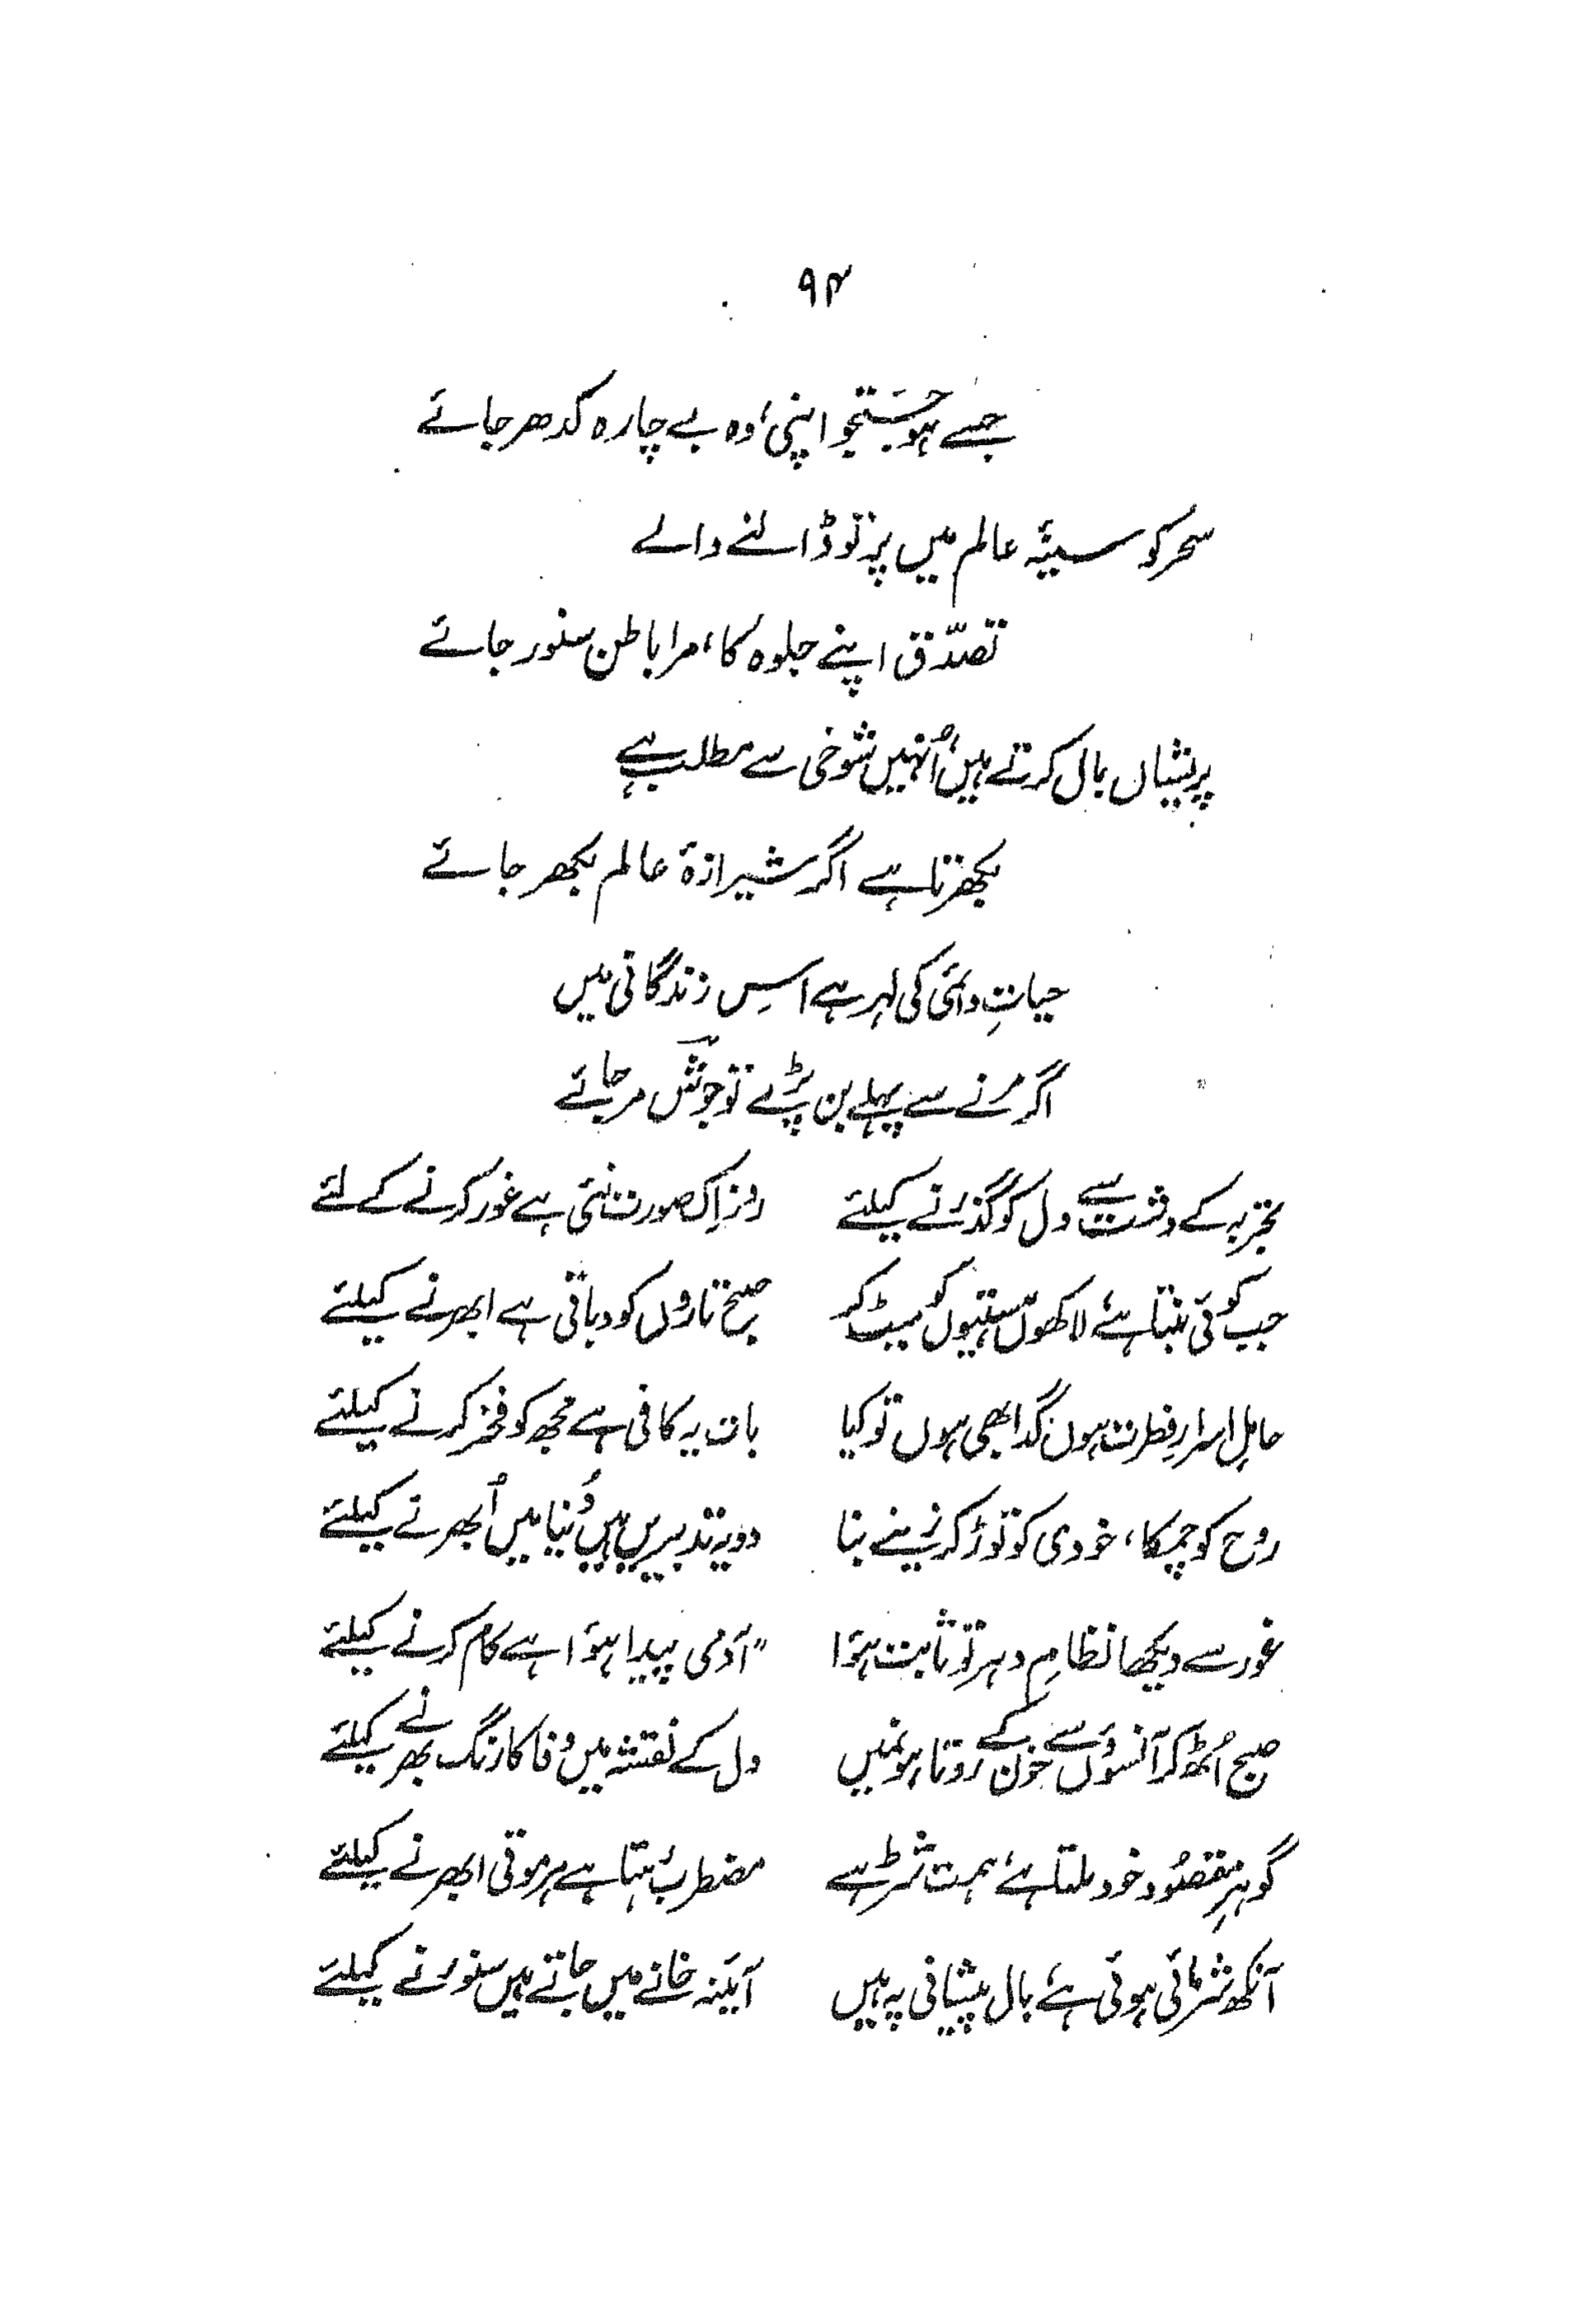 ۹۴
جسے ہو جستجو اپنی، وہ بے چارہ کدھر جائے
سحر کو سینۂ عالم میں پرتو ڈالنے والے
تصدّق اپنے جلوہ کا، مرا باطن سنور جائے
پریشاں بال کرتے ہیں، اُنہیں شوخی سے مطلب ہے
بکھرتا ہے اگر شیرازۂ عالم بکھر جائے
حیاتِ دائمی کی لہر ہے اس زندگانی میں
اگر مرنے سے پہلے بن پڑے تو جوشؔ مر جائے
تجربہ کے دشت سے دل کو گذرنے کیلئے روز اِک صورت نئی ہے غور کرنے کے لئے
جب کوئی بنتا ہے، لاکھوں ہستیوں کو میٹ کر صبح تاروں کو دباتی ہے ابھرنے کیلئے
حاملِ اسرارِ فطرت ہوں گدا بھی ہوں تو کیا بات یہ کافی ہے مجھ کو فخر کرنے کیلئے
روح کو چمکا، خودی کو توڑ کر زینے بنا دو یہ تدبیریں ہیں دُنیا میں اُبھرنے کیلئے
غور سے دیکھا نظامِ دہر تو ثابت ہوٗا "آدمی پیدا ہوٗا ہے کام کرنے کیلئے
صبح اُٹھ کر آنسوؤں سے خون کے روتا ہوں میں دل کے نقشہ میں وفا کا رنگ بھرنے کیلئے
گوہرِ مقصُود خود ملتا ہے، ہمت شرط ہے مضطرب رہتا ہے ہر موتی ابھرنے کیلئے
آنکھ شرمائی ہوئی ہے، بال پیشانی پہ ہیں آئینہ خانے میں جاتے ہیں سنورنے کیلئے